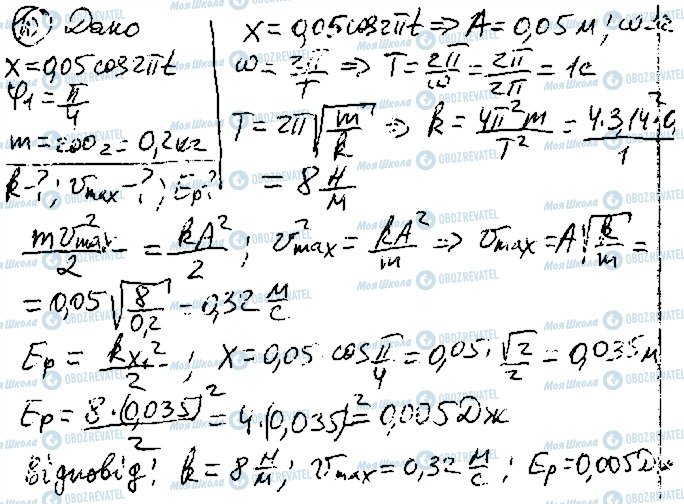 10) Дано
x = 0,05 cos 2πt
φ₁ = π/4
m = 200 г = 0,2 кг
k - ?; υmax - ?; Ep ?
x = 0,05 cos 2πt => A = 0,05 м; ω = 2
ω = 2π/T => T = 2π/ω = 2π/2π = 1 с
T = 2π√(m/k) => k = 4π²m/T² = 4·3,14²·0,/1
= 8 Н/м
mυ²max/2 = kA²/2; υ²max = kA²/m => υmax = A√(k/m) =
= 0,05 √(8/0,2) = 0,32 м/с
Ep = kx₁²/2; x = 0,05 cos π/4 = 0,05 · √2/2 = 0,035 м
Ep = 8·(0,035)²/2 = 4·(0,035)² = 0,005 Дж
Відповід: k = 8 Н/м; υmax = 0,32 м/с; Ep = 0,005 Дж
Моя Школа OBOZREVATEL